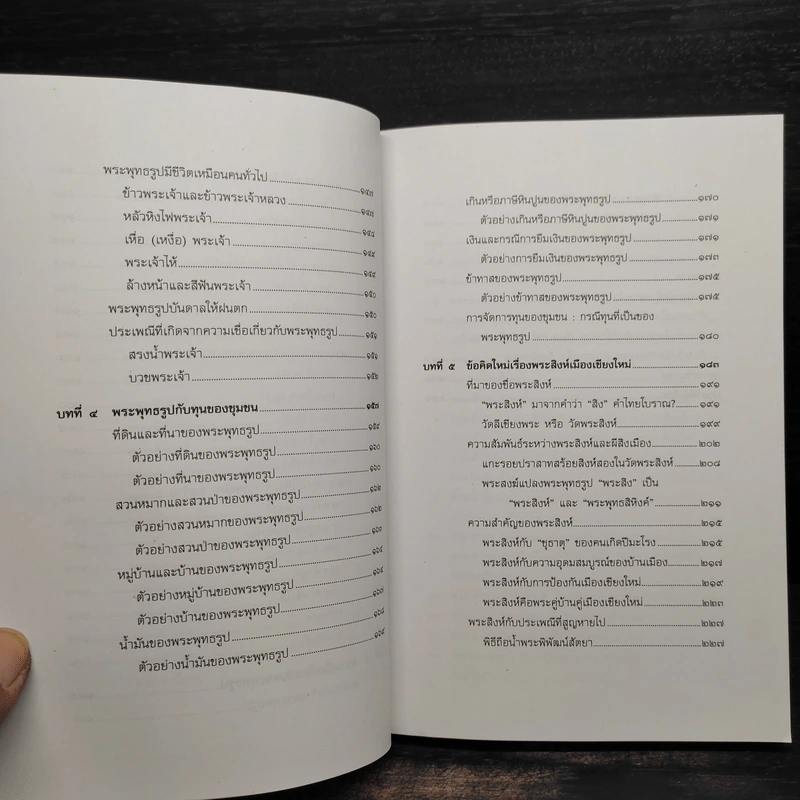 พระพุทธรูปมีชีวิตเหมือนคนทั่วไป ๑๔๗
ข้าวพระเจ้าและข้าวพระเจ้าหลวง ๑๔๗
หลัวหิงไฟพระเจ้า ๑๔๘
เหื่อ (เหงื่อ) พระเจ้า ๑๔๙
พระเจ้าไห้ ๑๔๙
ล้างหน้าและสีฟันพระเจ้า ๑๕๐
พระพุทธรูปบันดาลให้ฝนตก ๑๕๐
ประเพณีที่เกิดจากความเชื่อเกี่ยวกับพระพุทธรูป ๑๕๑
สรงน้ำพระเจ้า ๑๕๑
บวชพระเจ้า ๑๕๒
บทที่ ๔ พระพุทธรูปกับทุนของชุมชน ๑๕๗
ที่ดินและที่นาของพระพุทธรูป ๑๕๙
ตัวอย่างที่ดินของพระพุทธรูป ๑๖๐
ตัวอย่างที่นาของพระพุทธรูป ๑๖๐
สวนหมากและสวนป่าของพระพุทธรูป ๑๖๒
ตัวอย่างสวนหมากของพระพุทธรูป ๑๖๒
ตัวอย่างสวนป่าของพระพุทธรูป ๑๖๓
หมู่บ้านและบ้านของพระพุทธรูป ๑๖๔
ตัวอย่างหมู่บ้านของพระพุทธรูป ๑๖๔
ตัวอย่างบ้านของพระพุทธรูป ๑๖๗
น้ำมันของพระพุทธรูป ๑๖๘
ตัวอย่างน้ำมันของพระพุทธรูป ๑๖๙
เกินหรือภาษีหินปูนของพระพุทธรูป ๑๗๐
ตัวอย่างเกินหรือภาษีหินปูนของพระพุทธรูป ๑๗๑
เงินและกรณีการยืมเงินของพระพุทธรูป ๑๗๑
ตัวอย่างการยืมเงินของพระพุทธรูป ๑๗๓
ข้าทาสของพระพุทธรูป ๑๗๕
ตัวอย่างข้าทาสของพระพุทธรูป ๑๗๕
การจัดการทุนของชุมชน : กรณีทุนที่เป็นของ
พระพุทธรูป ๑๘๐
บทที่ ๕ ข้อคิดใหม่เรื่องพระสิงห์เมืองเชียงใหม่ ๑๘๓
ที่มาของชื่อพระสิงห์ ๑๙๑
“พระสิงห์” มาจากคำว่า “สิง” คำไทยโบราณ? ๑๙๑
วัดลีเชียงพระ หรือ วัดพระสิงห์ ๑๙๙
ความสัมพันธ์ระหว่างพระสิงห์และผีสิงเมือง ๒๐๒
แกะรอยปราสาทสร้อยสิงห์สองในวัดพระสิงห์ ๒๐๘
พระสงฆ์แปลงพระพุทธรูป “พระสิง” เป็น
“พระสิงห์” และ “พระพุทธสิหิงค์” ๒๑๑
ความสำคัญของพระสิงห์ ๒๑๕
พระสิงห์กับ “ชุธาตุ” ของคนเกิดปีมะโรง ๒๑๕
พระสิงห์กับความอุดมสมบูรณ์ของบ้านเมือง ๒๑๗
พระสิงห์กับการป้องกันเมืองเชียงใหม่ ๒๑๙
พระสิงห์คือพระคู่บ้านคู่เมืองเชียงใหม่ ๒๒๓
พระสิงห์กับประเพณีที่สูญหายไป ๒๒๗
พิธีถือน้ำพระพิพัฒน์สัตยา ๒๒๗